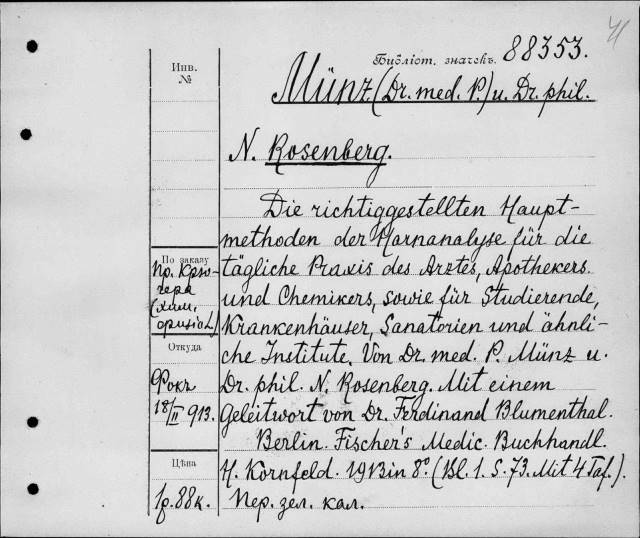 41
Библіот. значекъ. 88353.
Инв.
№
Münz (Dr. med. P.) u. Dr. phil.
N. Rosenberg.
Die richtiggestellten Haupt-
methoden der Harnanalyse für die
tägliche Praxis des Arztes, Apothekers
und Chemikers, sowie für Studierende,
Krankenhäuser, Sanatorien und ähnli-
che Institute. Von Dr. med. P. Münz u.
Dr. phil. N. Rosenberg. Mit einem
Geleitwort von Dr. Ferdinand Blumenthal.
Berlin. Fischer's Medic. Buchhandl.
H. Kornfeld. 1913 in 8°. (Bl. 1. S. 73. Mit 4 Taf.).
Пер. зел. кал.
По заказу
Пр. Крю-
гера
(хим.
Откуда
Фокъ
18/II 913.
Цѣна
1р. 88к.